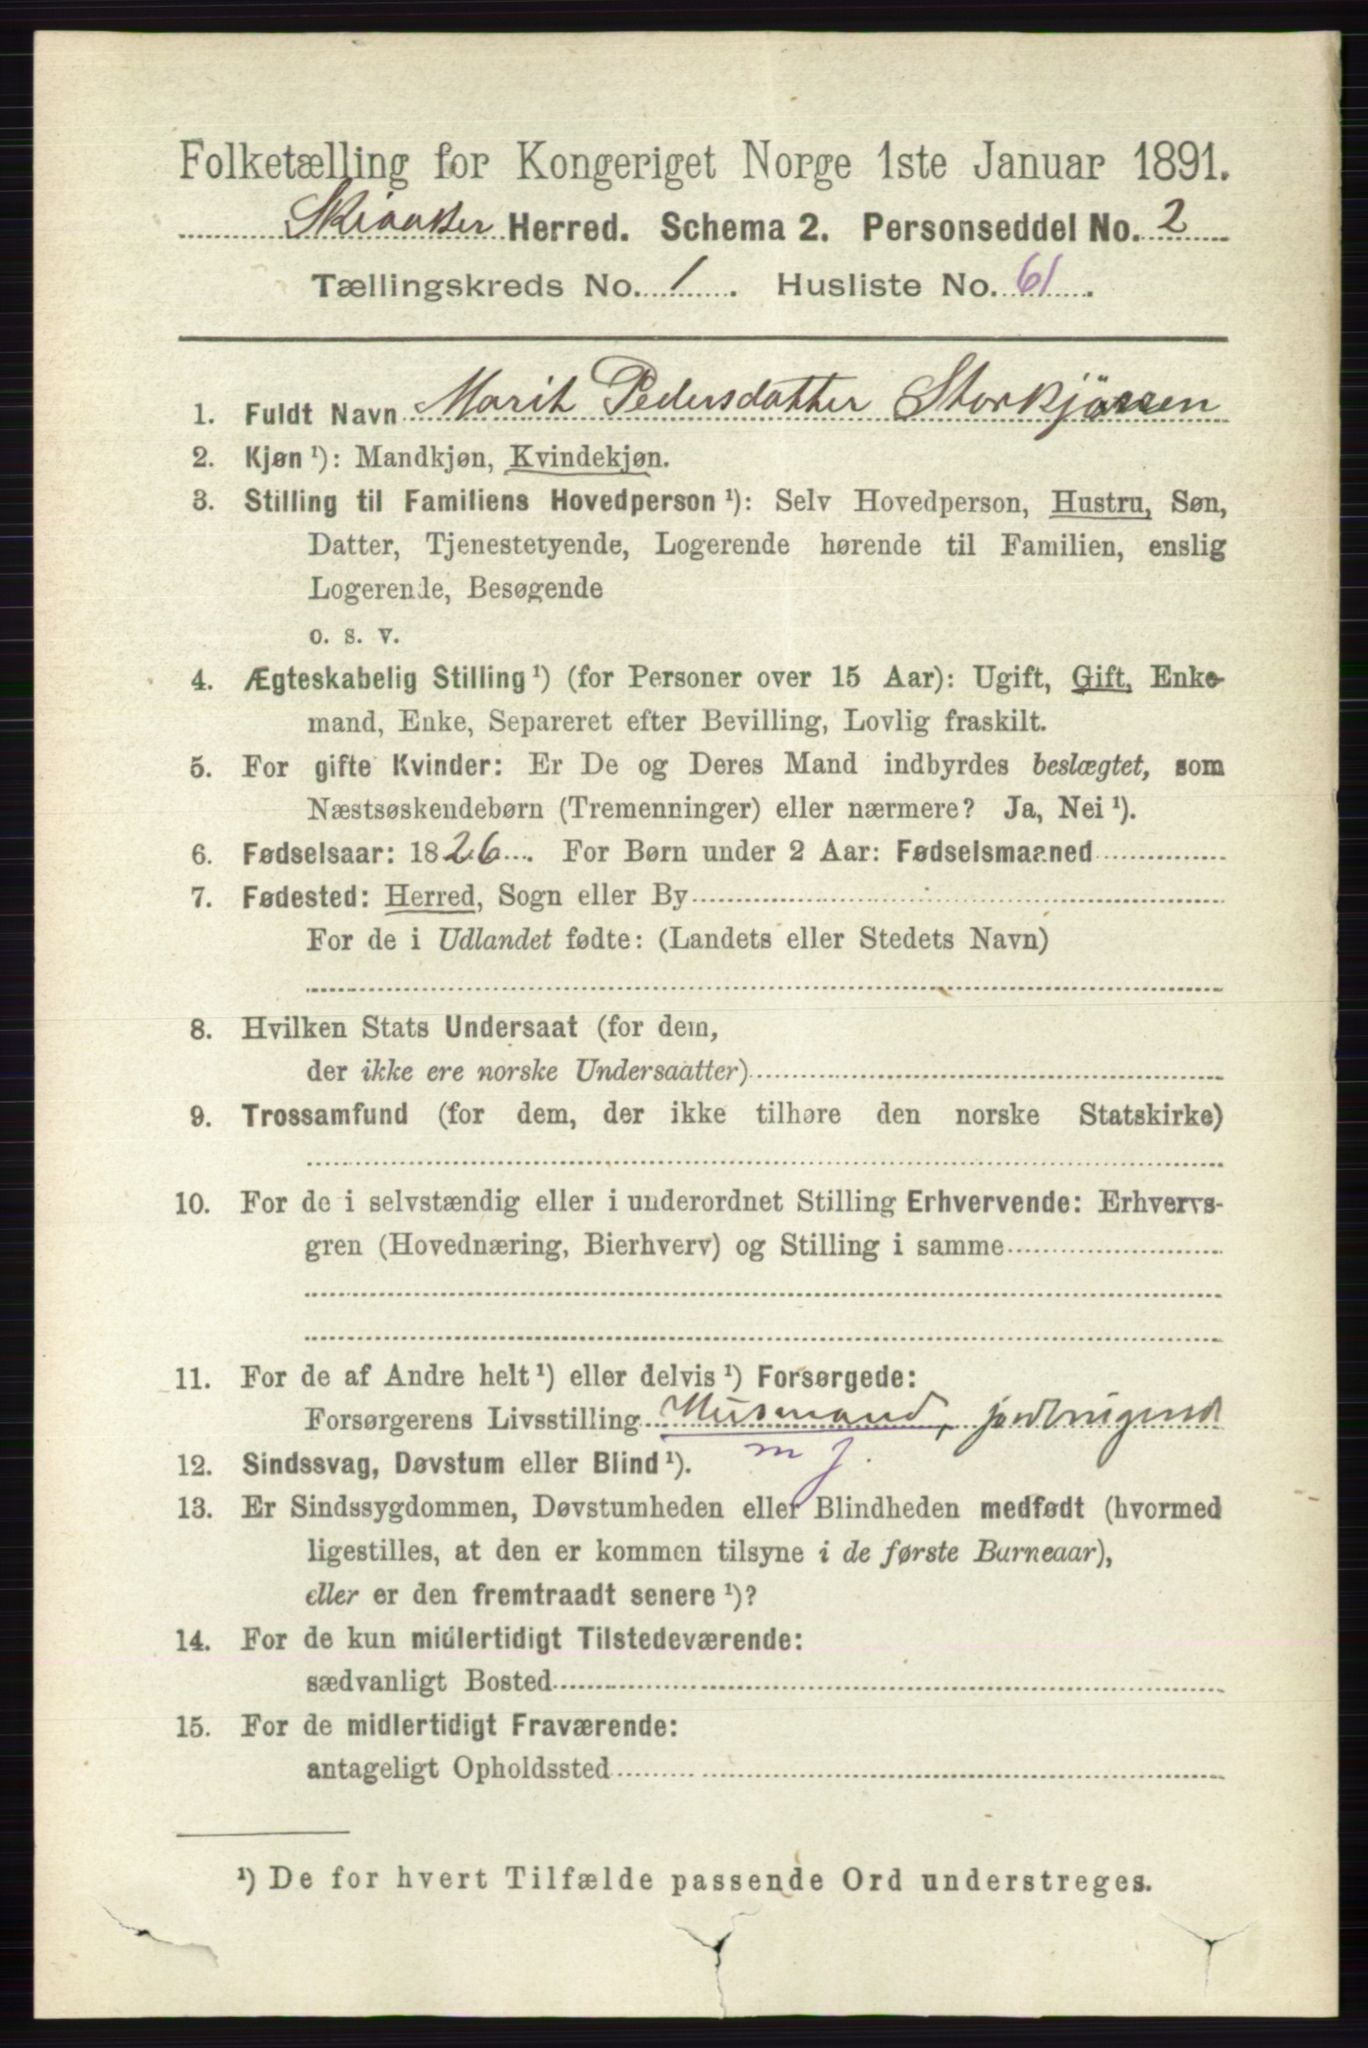 Folketælling for Kongeriget Norge 1ste Januar 1891.
Skiaaker Herred. Schema 2. Personseddel No. 2
Tællingskreds No. 1. Husliste No. 61.
1. Fuldt Navn Marit Pedersdatter Storkjören
2. Kjøn ¹): Mandkjøn, Kvindekjøn.
3. Stilling til Familiens Hovedperson ¹): Selv Hovedperson, Hustru, Søn,
Datter, Tjenestetyende, Logerende hørende til Familien, enslig
Logerende, Besøgende
o. s. v.
4. Ægteskabelig Stilling ¹) (for Personer over 15 Aar): Ugift, Gift, Enke-
mand, Enke, Separeret efter Bevilling, Lovlig fraskilt.
5. For gifte Kvinder: Er De og Deres Mand indbyrdes beslægtet, som
Næstsøskendebørn (Tremenninger) eller nærmere? Ja, Nei ¹).
6. Fødselsaar: 1826. For Børn under 2 Aar: Fødselsmaaned
7. Fødested: Herred, Sogn eller By
For de i Udlandet fødte: (Landets eller Stedets Navn)
8. Hvilken Stats Undersaat (for dem,
der ikke ere norske Undersaatter)
9. Trossamfund (for dem, der ikke tilhøre den norske Statskirke)
10. For de i selvstændig eller i underordnet Stilling Erhvervende: Erhvervs-
gren (Hovednæring, Bierhverv) og Stilling i samme
11. For de af Andre helt ¹) eller delvis ¹) Forsørgede:
Forsørgerens Livsstilling Husmand, jordbrugende
m j.
12. Sindssvag, Døvstum eller Blind ¹).
13. Er Sindssygdommen, Døvstumheden eller Blindheden medfødt (hvormed
ligestilles, at den er kommen tilsyne i de første Barneaar),
eller er den fremtraadt senere ¹)?
14. For de kun midlertidigt Tilstedeværende:
sædvanligt Bosted
15. For de midlertidigt Fraværende:
antageligt Opholdssted
¹) De for hvert Tilfælde passende Ord understreges.